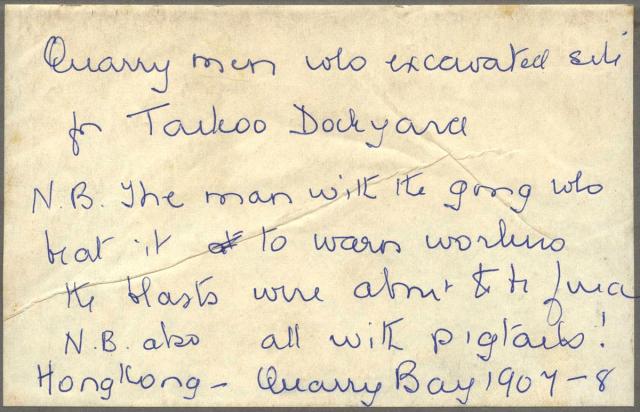 Quarry men who excavated site
for Taikoo Dockyard
N.B. The man with the gong who
beat it to warn workers
the blasts were about to be fired
N.B. also all with pigtails!
HongKong - Quarry Bay 1907-8